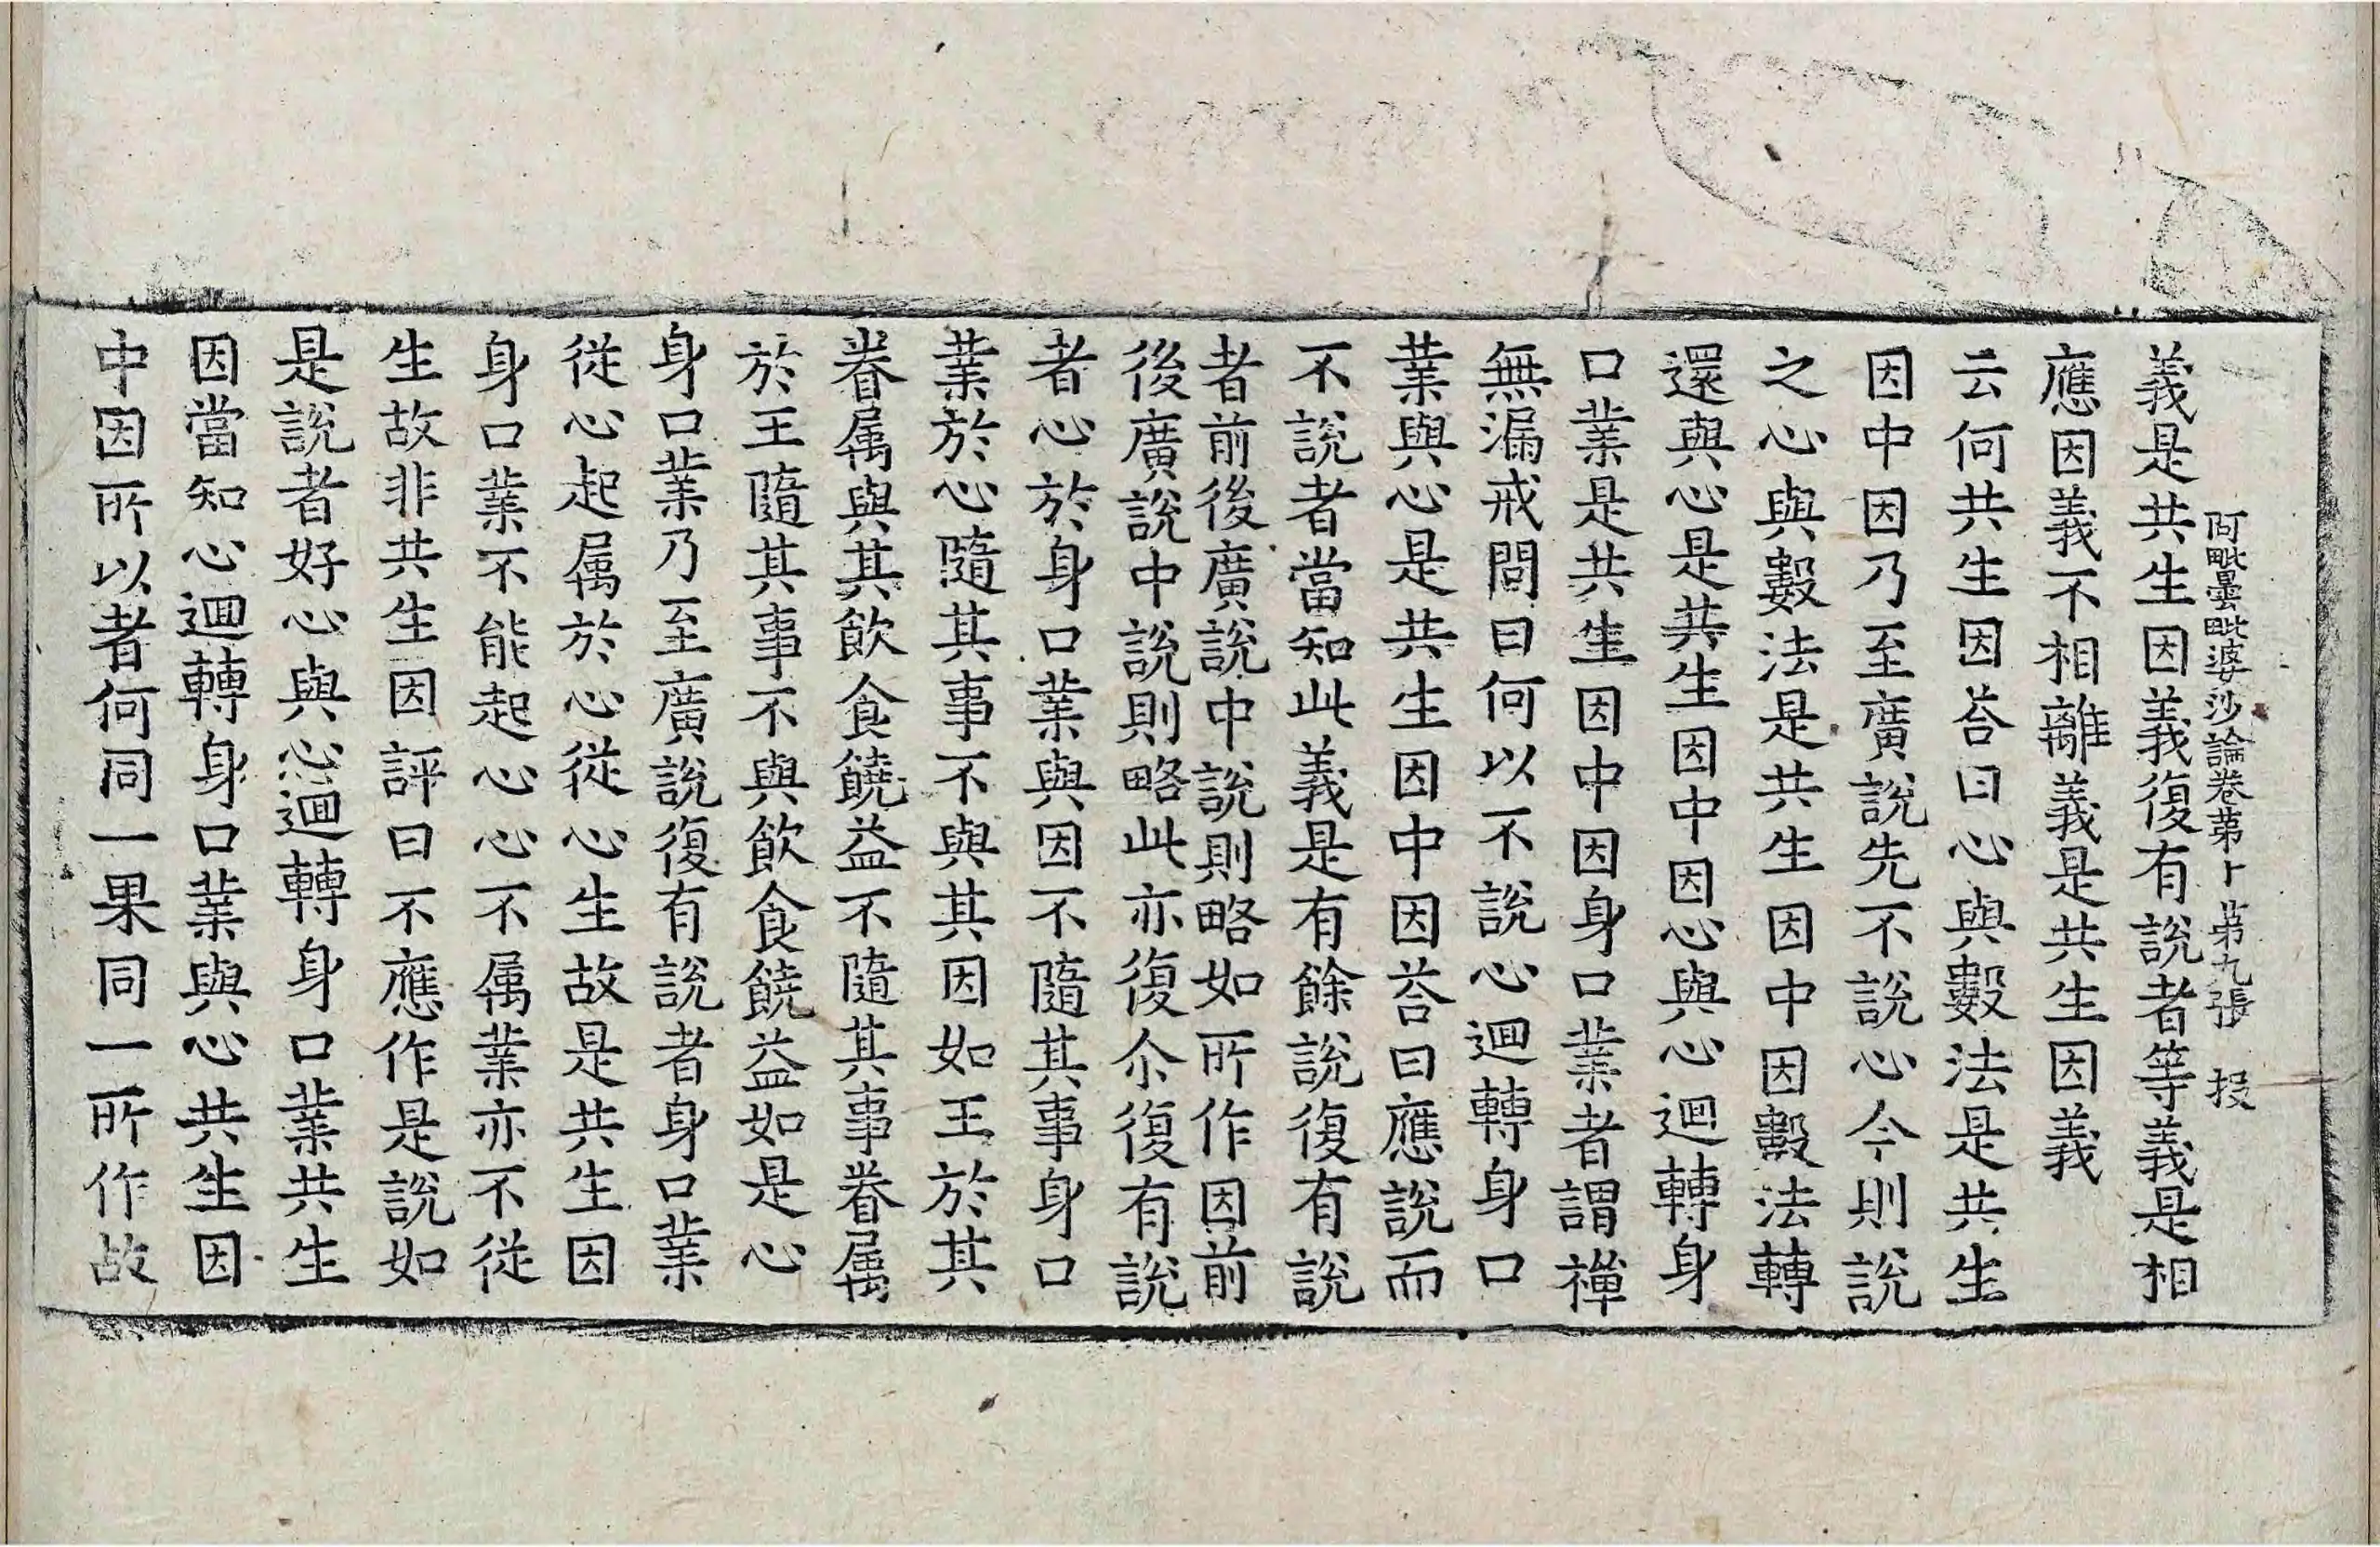 阿毗曇毗婆沙論卷第十 第九張 投
義是共生因義復有說者等義是相
應因義不相離義是共生因義
云何共生因荅曰心與數法是共生
因中因乃至廣說先不說心今則說
之心與數法是共生因中因數法轉
還與心是共生因中因心與心迴轉身
口業是共生因中因身口業者謂禪
無漏戒問曰何以不說心迴轉身口
業與心是共生因中因荅曰應說而
不說者當知此義是有餘說復有說
者前後廣說中說則略如所作因前
後廣說中說則略此亦復尒復有說
者心於身口業與因不隨其事身口
業於心隨其事不與其因如王於其
眷属與其飲食饒益不隨其事眷属
於王隨其事不與飲食饒益如是心
身口業乃至廣說復有說者身口業
從心起属於心從心生故是共生因
身口業不能起心心不属業亦不從
生故非共生因評曰不應作是說如
是說者好心與心迴轉身口業共生
因當知心迴轉身口業與心共生因
中因所以者何同一果同一所作故